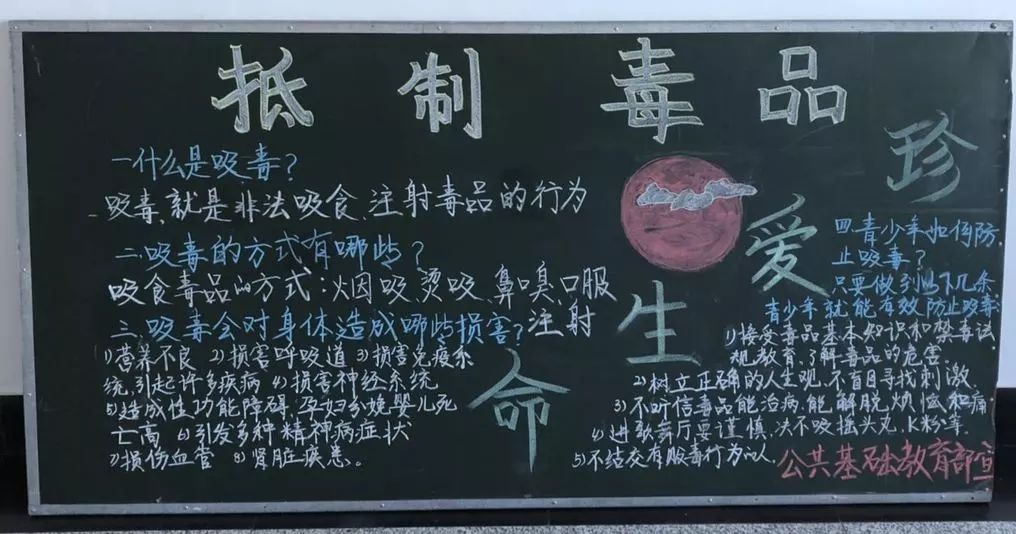 抵制毒品
珍爱生命
一.什么是吸毒?
吸毒,就是非法吸食、注射毒品的行为
二.吸毒的方式有哪些?
吸食毒品的方式:烟吸、烫吸、鼻嗅、口服
注射
三.吸毒会对身体造成哪些损害?
1)营养不良 2)损害呼吸道 3)损害免疫系
统,引起许多疾病 4)损害神经系统
5)造成性功能障碍,孕妇分娩婴儿死
亡高 6)引发多种精神病症状
7)损伤血管 8)肾脏疾患。
四.青少年如何防
止吸毒?
只要做到以下几条
青少年就能有效防止吸毒
1)接受毒品基本知识和禁毒法
规教育,了解毒品的危害.
2)树立正确的人生观,不盲目寻找刺激.
3)不听信毒品能治病,能解脱烦恼和痛
4)进歌舞厅要谨慎,决不吸摇头丸、K粉等.
5)不结交有贩毒行为的人.
公共基础教育部宣